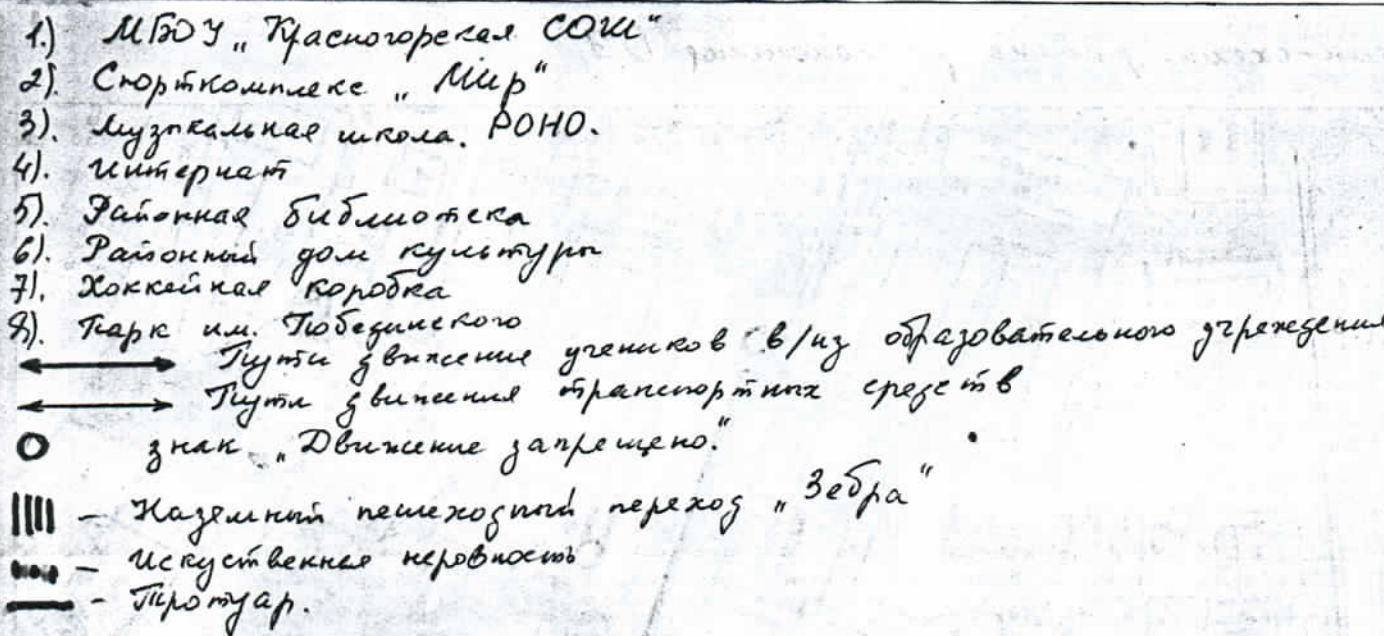 1.) МБОУ „Красногорская СОШ"
2). Спорткомплекс „Мир"
3). Музыкальная школа. РОНО.
4). Интернат
5). Районная библиотека
6). Районный дом культуры
7). Хоккейная коробка
8). Парк им. Побединского
Пути движения учеников в/из образовательного учреждения
Пути движения транспортных средств
знак „Движение запрещено."
– Наземный пешеходный переход „Зебра"
– Искуственная неровность
– Тротуар.